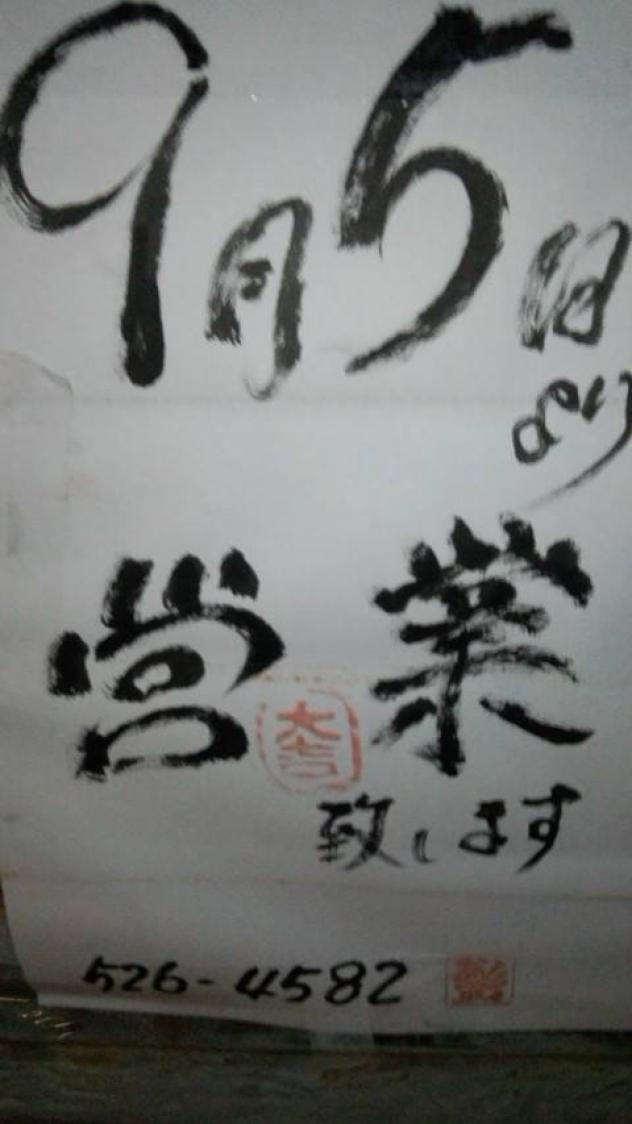 9月5日
より
営業
大吉
致します
526-4582